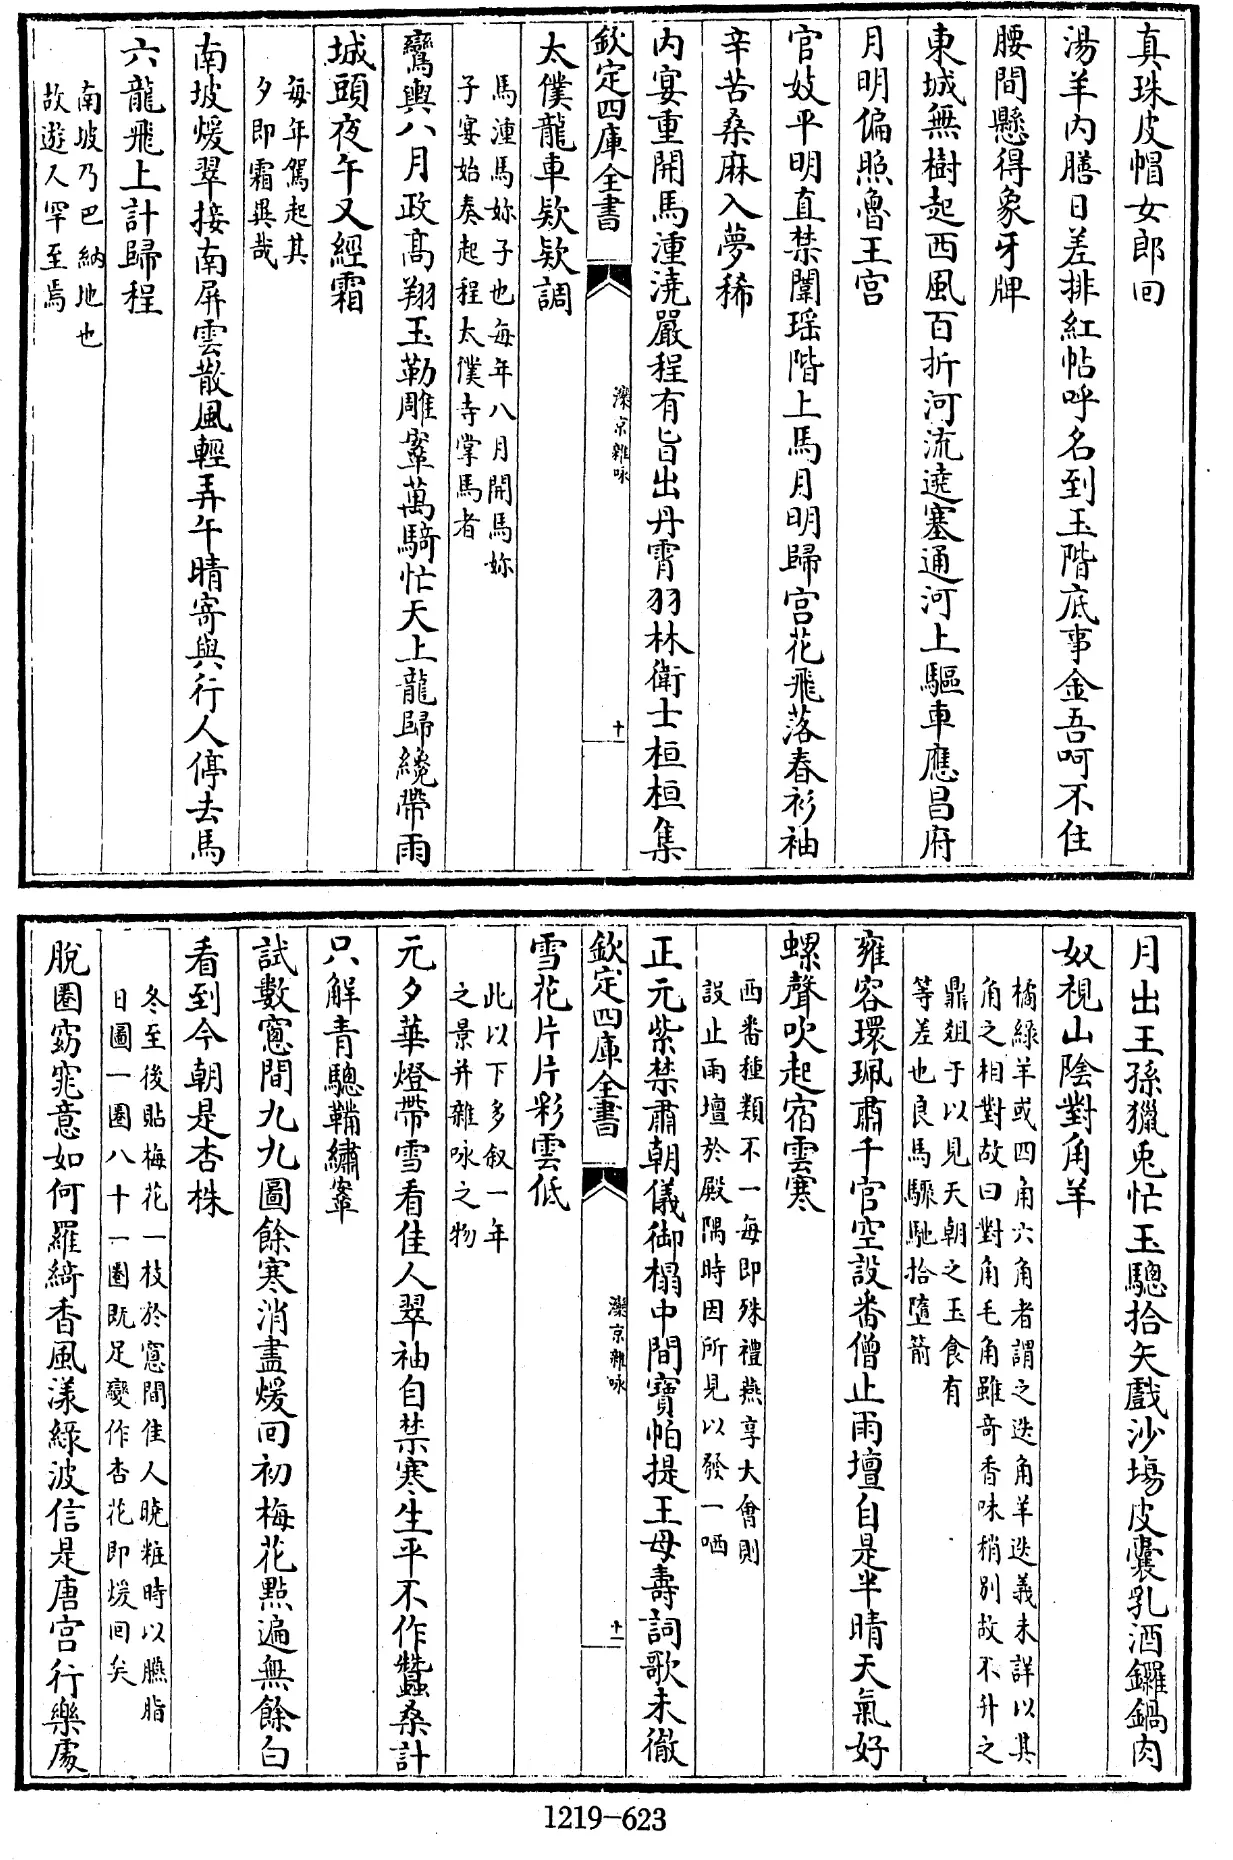 真珠皮帽女郎回
湯羊内膳日差排紅帖呼名到玉階底事金吾呵不住
腰間懸得象牙牌
東城無樹起西風百折河流遶塞通河上驅車應昌府
月明偏照魯王宫
官妓平明直禁闈瑶階上馬月明歸宫花飛落春衫袖
辛苦桑麻入夢稀
内宴重開馬湩澆嚴程有旨出丹霄羽林衛士桓桓集
欽定四庫全書
灤京雜咏
十
太僕龍車欵欵調
馬湩馬妳子也每年八月開馬妳
子宴始奏起程太僕寺掌馬者
鸞輿八月政髙翔玉勒雕鞌萬騎忙天上龍歸纔帶雨
城頭夜午又經霜
每年駕起其
夕即霜異哉
南坡煖翠接南屏雲散風輕弄午晴寄與行人停去馬
六龍飛上計歸程
南坡乃巴納地也
故遊人罕至焉
月出王孫獵兎忙玉驄拾矢戲沙塲皮囊乳酒鑼鍋肉
奴視山陰對角羊
橘緑羊或四角六角者謂之迭角羊迭義未詳以其
角之相對故曰對角毛角雖奇香味稍别故不升之
鼎俎于以見天朝之玉食有
等差也良馬驟馳拾墮箭
雍容環珮肅千官空設番僧止雨壇自是半晴天氣好
螺聲吹起宿雲寒
西番種類不一每即殊禮燕享大㑹則
設止雨壇於殿隅時因所見以發一哂
正元紫禁肅朝儀御榻中間寶帕提王母壽詞歌未徹
欽定四庫全書
灤京雜咏
十一
雪花片片彩雲低
此以下多叙一年
之景并雜咏之物
元夕華燈帶雪看佳人翠袖自禁寒生平不作蠶桑計
只解青驄鞴繡鞌
試數窻間九九圖餘寒消盡煖回初梅花點遍無餘白
看到今朝是杏株
冬至後貼梅花一枝於窻間佳人曉粧時以臙脂
日圖一圈八十一圈既足變作杏花即煖回矣
脱圈窈窕意如何羅綺香風漾緑波信是唐宫行樂處
1219-623